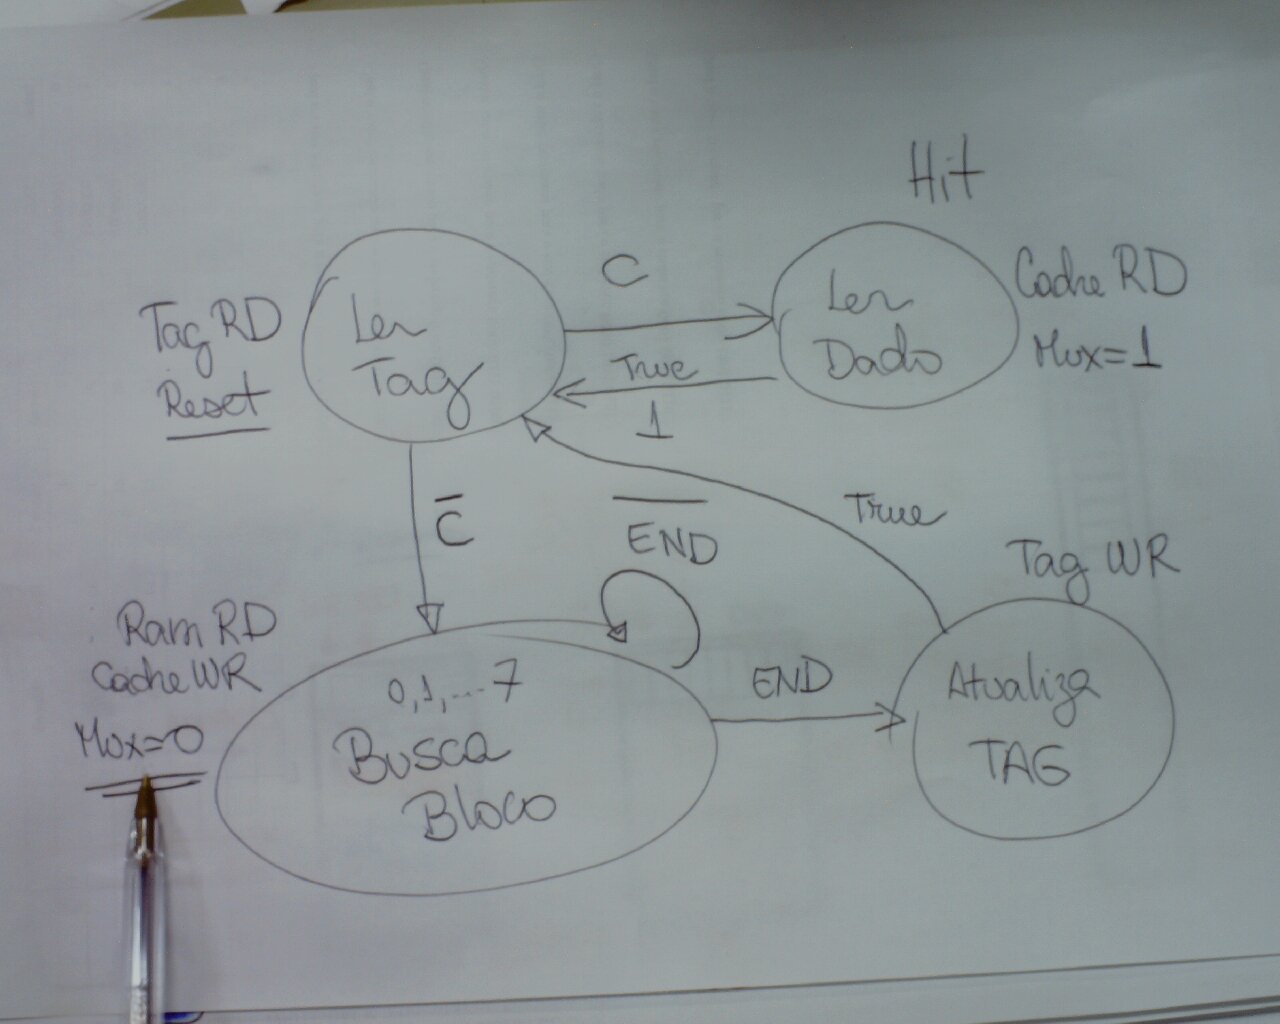 Hit
C
Tag RD
Reset
Ler
Tag
Ler
Dado
Cache RD
Mux=1
True
1
C̅
E̅N̅D̅
True
Tag WR
Ram RD
Cache WR
Mux=0
0,1,...7
Busca
Bloco
END
Atualiza
TAG